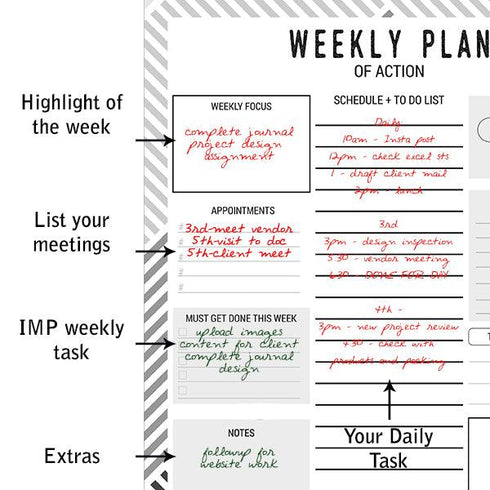 WEEKLY PLAN
OF ACTION
Highlight of
the week
WEEKLY FOCUS
complete journal
project design
assignment
List your
meetings
APPOINTMENTS
3rd-meet vendor
5th-visit to doc
5th-client meet
IMP weekly
task
MUST GET DONE THIS WEEK
upload images
content for client
complete journal
design
Extras
NOTES
followup for
website work
SCHEDULE + TO DO LIST
Daily
10am - Insta post
12pm - check excel sts
1 - draft client mail
2pm - lunch
3rd
3pm - design inspection
5 30 - vendor meeting
6 30 - DONE FOR DAY
4th -
3pm - new project review
4 30 - check with
products and packing
Your Daily
Task